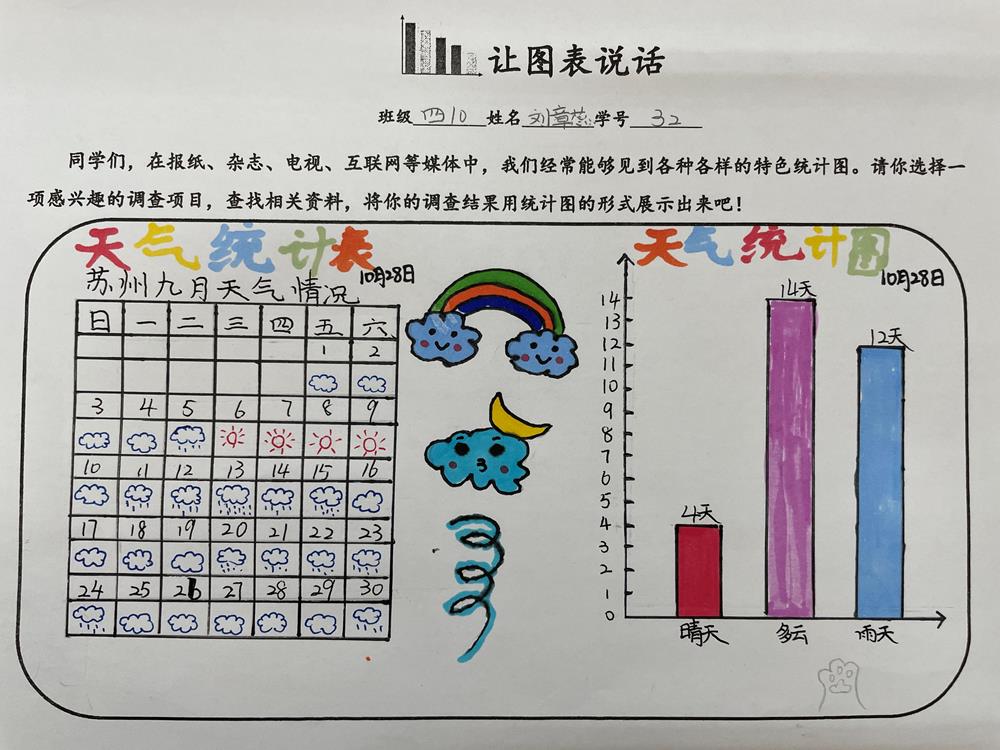 让图表说话
班级 四10 姓名 刘章蕊 学号 32
同学们，在报纸、杂志、电视、互联网等媒体中，我们经常能够见到各种各样的特色统计图。请你选择一
项感兴趣的调查项目，查找相关资料，将你的调查结果用统计图的形式展示出来吧！
天气统计表
10月28日
苏州九月天气情况
日 一 二 三 四 五 六
1 2
3 4 5 6 7 8 9
10 11 12 13 14 15 16
17 18 19 20 21 22 23
24 25 26 27 28 29 30
天气统计图
10月28日
14
13
12
11
10
9
8
7
6
5
4
3
2
1
0
4天
14天
12天
晴天 多云 雨天